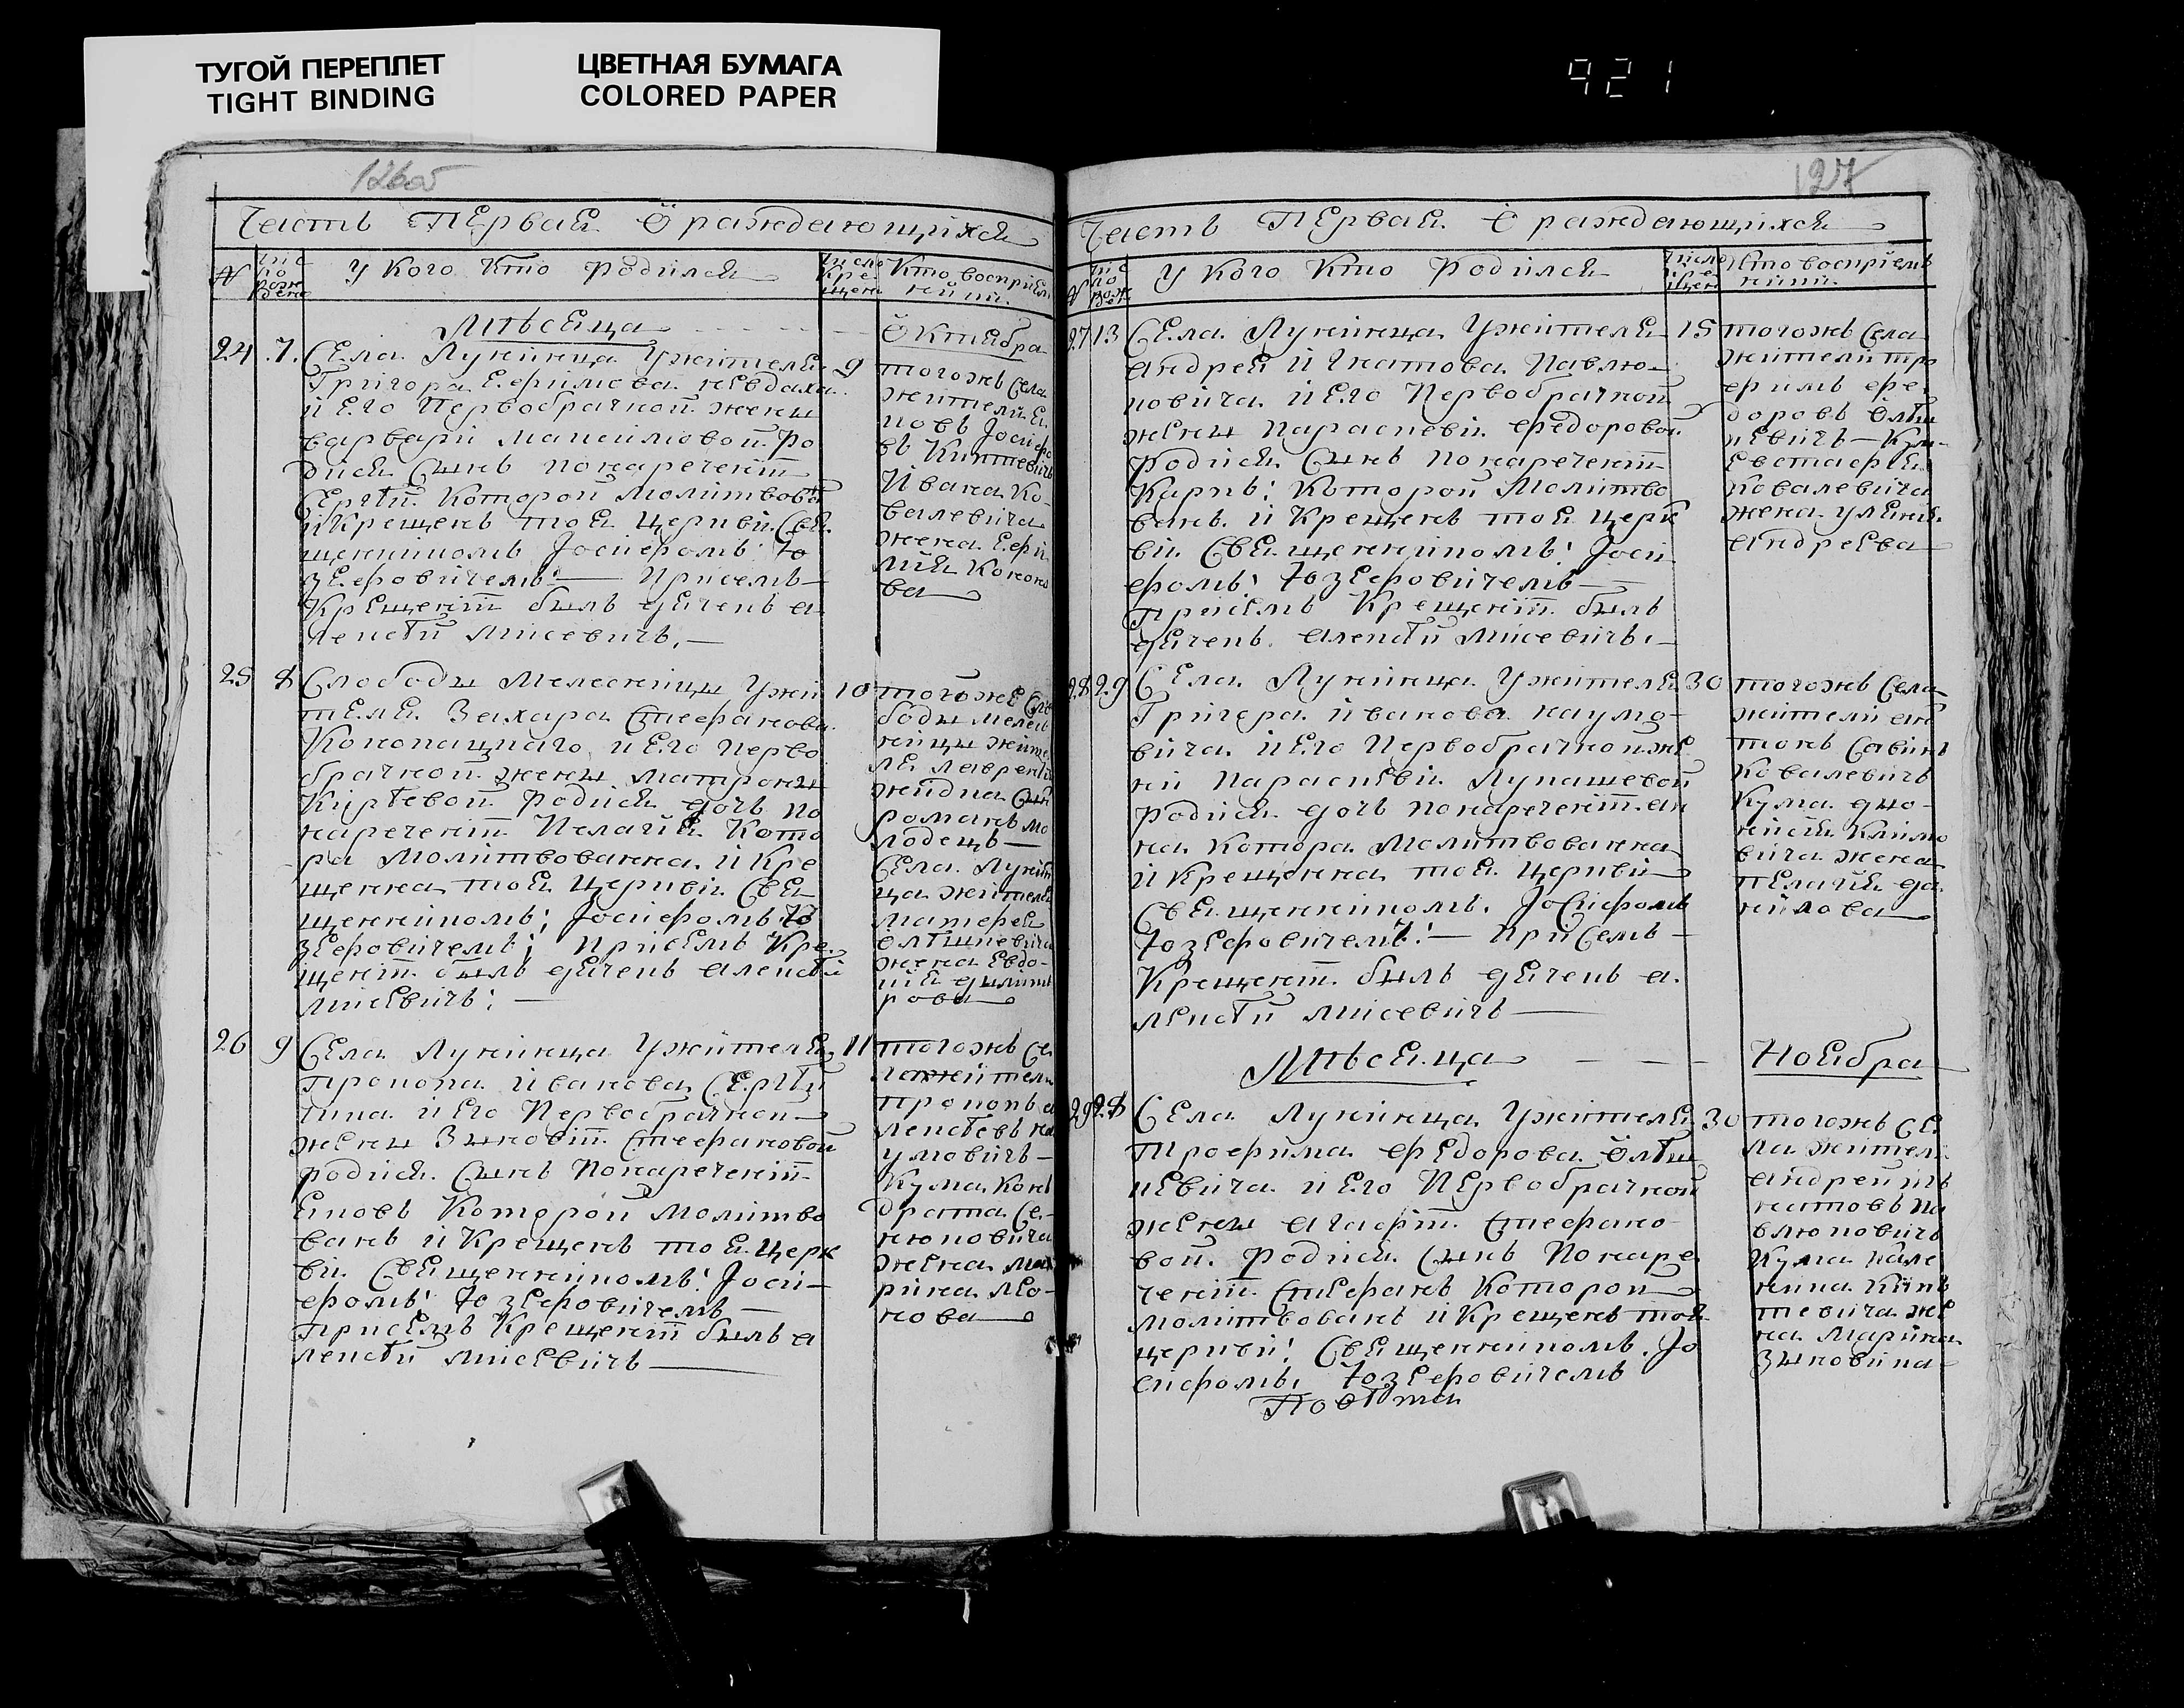 ТУГОЙ ПЕРЕПЛЕТ
TIGHT BINDING
ЦВЕТНАЯ БУМАГА
COLORED PAPER
921
126об
Часть Первая Ѽ раждающихся
№
Число рождения
У Кого Кто Родился
Число Крещения
Кто восприемники
Мѣсяца
Октября
24
7.
Села Лунинца Ужителя
Григора Ефимова Невдаха
и Его Первобрачной жены
варвари Мапеимовой Ро
дися Сынъ понаречению
Сергѣй Которой молитвовa
и Крещенъ тоя Церкви Свя
щенникомъ Иосифомъ Ю
зефовичемъ — При семъ
Крещении былъ дячекъ а
лексѣй мисевичъ.—
9
тогожъ села
жители Я
ковъ Иосифо
въ Киптевичъ
Ивана Ко
валевича
жена Ефи
мия Конона
ва
25
8
Слободы Мелесницы Ужи
теля Захара Стефанова
Конопацкаго и Его Перво
брачной жены матроны
Кирѣевой Родися дочь по
наречению Пелагия Кото
ра молитвованна и Кре
щенна тоя Церкви Свя
щенникомъ; Иосифомъ Ю
зефовичемъ; При семъ Кре
щении былъ дячекъ алексѣй
мисевичъ;—
10
тогожъ Сло
боды мелес
ницы жите
ля лаврентия
жидка сынъ
романъ мо
лодецъ—
Села Лунин
ца жителя
матфея
олѣшкевича
жена Евдо-
кия дымит
рова
26
9
Села Лунинца Ужителя
прокопа иванова Сергѣй
чика и Его Первобрачной
жены Зыновии Стефановой
родися Сынъ Понаречению
Яковъ Которой молитво
ванъ и Крещенъ тоя Церк
ви Священникомъ! Иоси-
фомъ! Юзефовичемъ—
При семъ Крещении былъ а
лексѣй мисевичъ
11
тогожъ се
ла жители
прокопъ а
лексѣевъ на
умовичъ—
Кума Кон
драта Се-
нюковича
жена ма
рина лео-
нова
127
Часть Первая Ѽ раждающихся
№
Число рожде
У Кого Кто Родился
Число Крещен
Кто восприемники
27
13
Села Лунинца Ужителя
андрея Игнатова Павлю-
ковича и Его Первобрачной
жены параскеви федоровой
Родися Сынъ понаречению
Карпъ; Которой молитво
ванъ и Крещенъ тоя церк
ви Священникомъ! Иоси
фомъ; Юзефовичемъ—
При семъ Крещении былъ
дячекъ алексѣй мисевичъ.—
15
тогожъ села
жители тро
фимъ фе-
доровъ Олѣш
кевичъ—Кума
Евстафия
ковалевича
жена улияна
андреева
28
29
Села Лунинца Ужителя
Григора иванова наумо-
вича и Его Первобрачной же
ни параскеви Лукашевой
Родися дочь понаречению ан
на Котора молитвованна
и Крещенна тоя Церкви
Священникомъ. Иосифомъ
Юзефовичемъ!— При семъ—
Крещении былъ дячекъ а.
лексѣй мисевичъ—
30
тогожъ села
жители ан
тонъ Савинъ
Ковалевичъ
Кума дио-
нисия Климо
вича жена
пелагия да
нилова
Мѣсяца — — —
Ноября
29
28
Села Лунинца Ужителя
Трофима федорова Олѣш
кевича и Его Первобрачной
жены агафии Стефано
вой Родися Сынъ Понаре
чению Стефанъ Которой
молитвованъ и Крещенъ тоя
церкви! Священникомъ. Ио
сифомъ, Юзефовичемъ
30
тогожъ се
ла жители
андрей иг
натовъ па
влюковичъ
Кума кале
ника Кип
тевича же
на марина
Зыновина